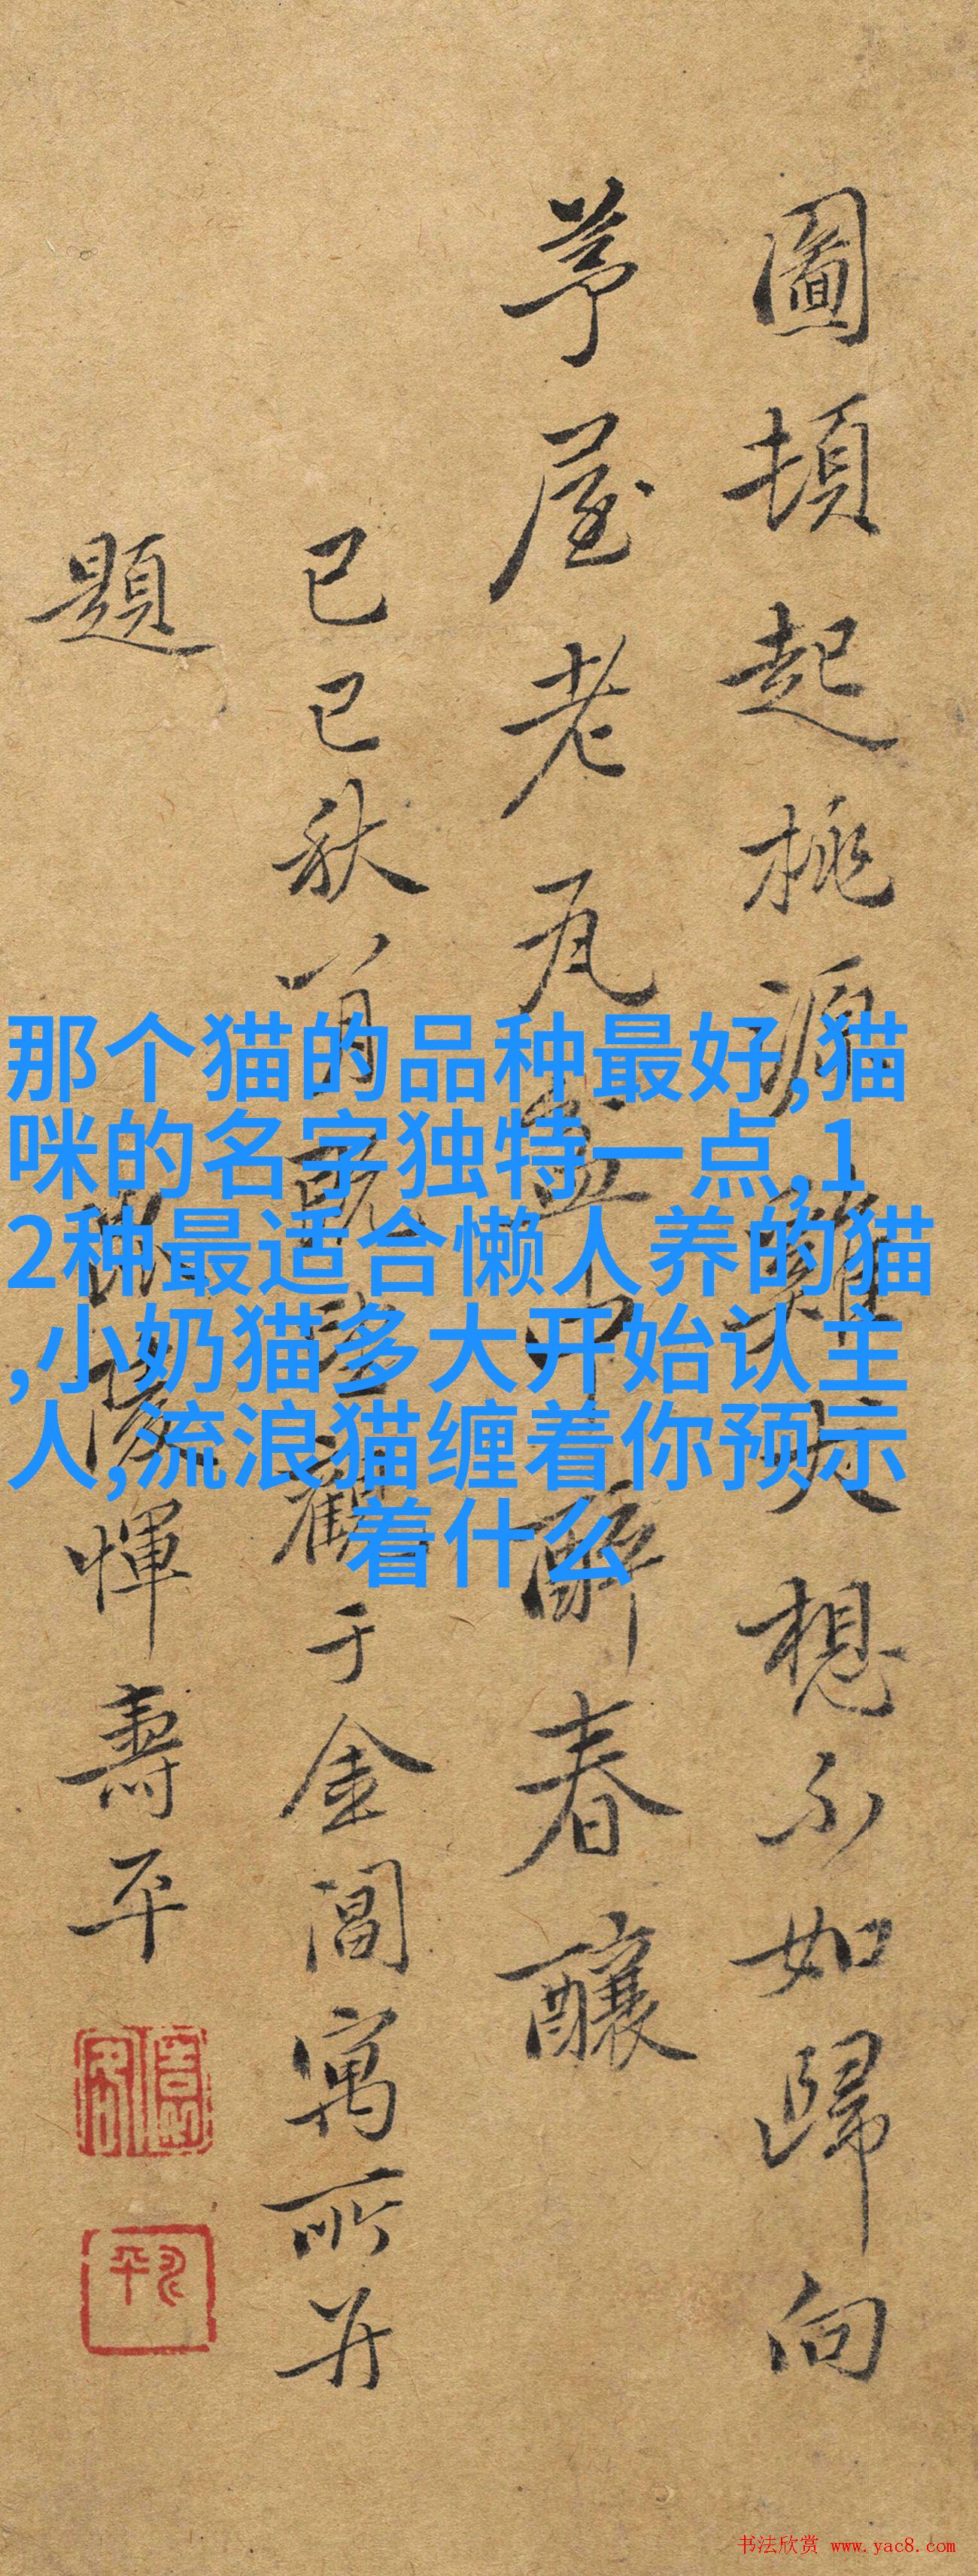 圖頓起桃源雞犬想不如歸向
茅屋老瓦盆中醉春釀
己巳秋八月既望觀于金閶寓所并
題
惲壽平
那个猫的品种最好,猫
咪的名字独特一点,1
2种最适合懒人养的猫
,小奶猫多大开始认主
人,流浪猫缠着你预示
着什么
书法欣赏 www.yac8.com